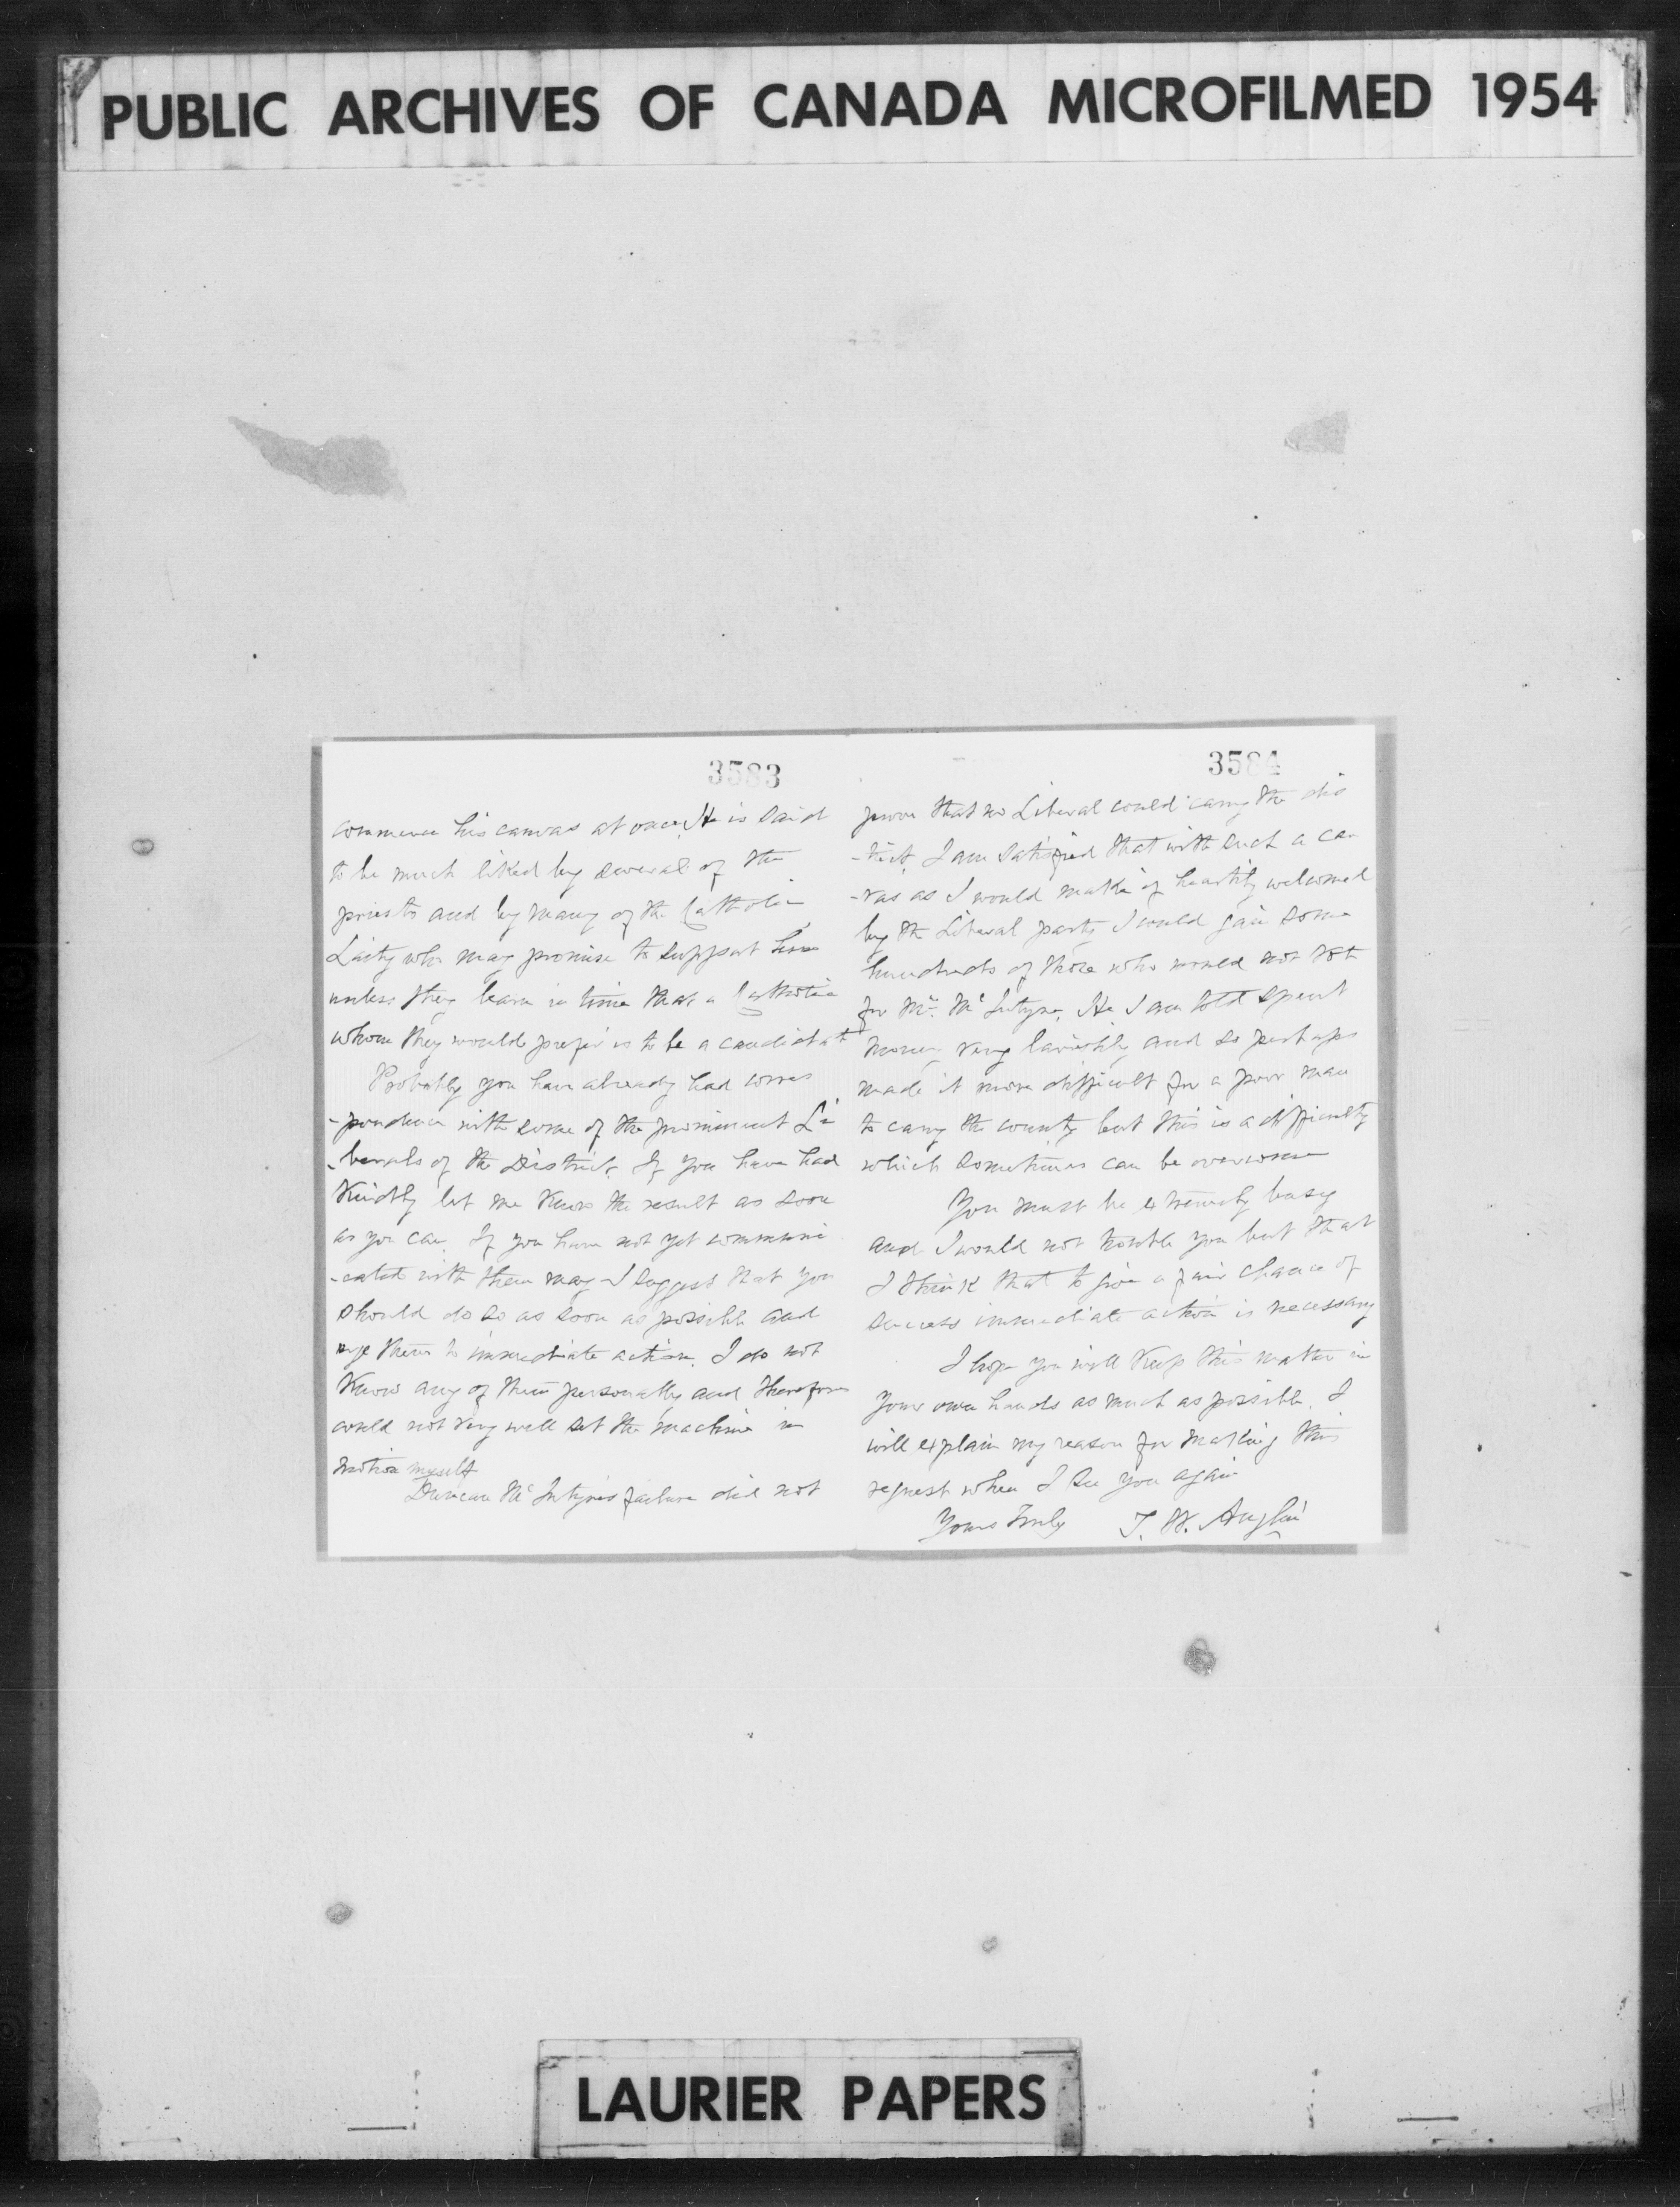 PUBLIC ARCHIVES OF CANADA MICROFILMED 1954
3583
commence his canvas at once. He is said
to be much liked by several of the
priests and by many of the Catholic
Laity who may promise to support him
unless they learn in time that a Catholic
whom they would prefer is to be a candidate
Probably you have already had corres
-pondence with some of the prominent Li
-berals of the District. If you have had
Kindly let me know the result as soon
as you can. If you have not yet communi
-cated with them may I suggest that you
should do so as soon as possible and
urge them to immediate action. I do not
Know any of them personally and therefore
could not very well set the machine in
motion myself
Duncan McIntyre's failure did not
3584
prove that no Liberal could carry the dis
-trict. I am satisfied that with such a can
-vas as I would make if heartily welcomed
by the Liberal party I would gain some
hundreds of those who would not vote
for Mr. McIntyre. He I am told spent
money very lavishly and so perhaps
made it more difficult for a poor man
to carry the county but this is a difficulty
which sometimes can be overcome
You must be extremely busy
and I would not trouble you but that
I think that to give a fair chance of
success immediate action is necessary
I hope you will keep this matter in
your own hands as much as possible. I
will explain my reason for making this
request when I see you again
Yours Truly T. W. Anglin
LAURIER PAPERS